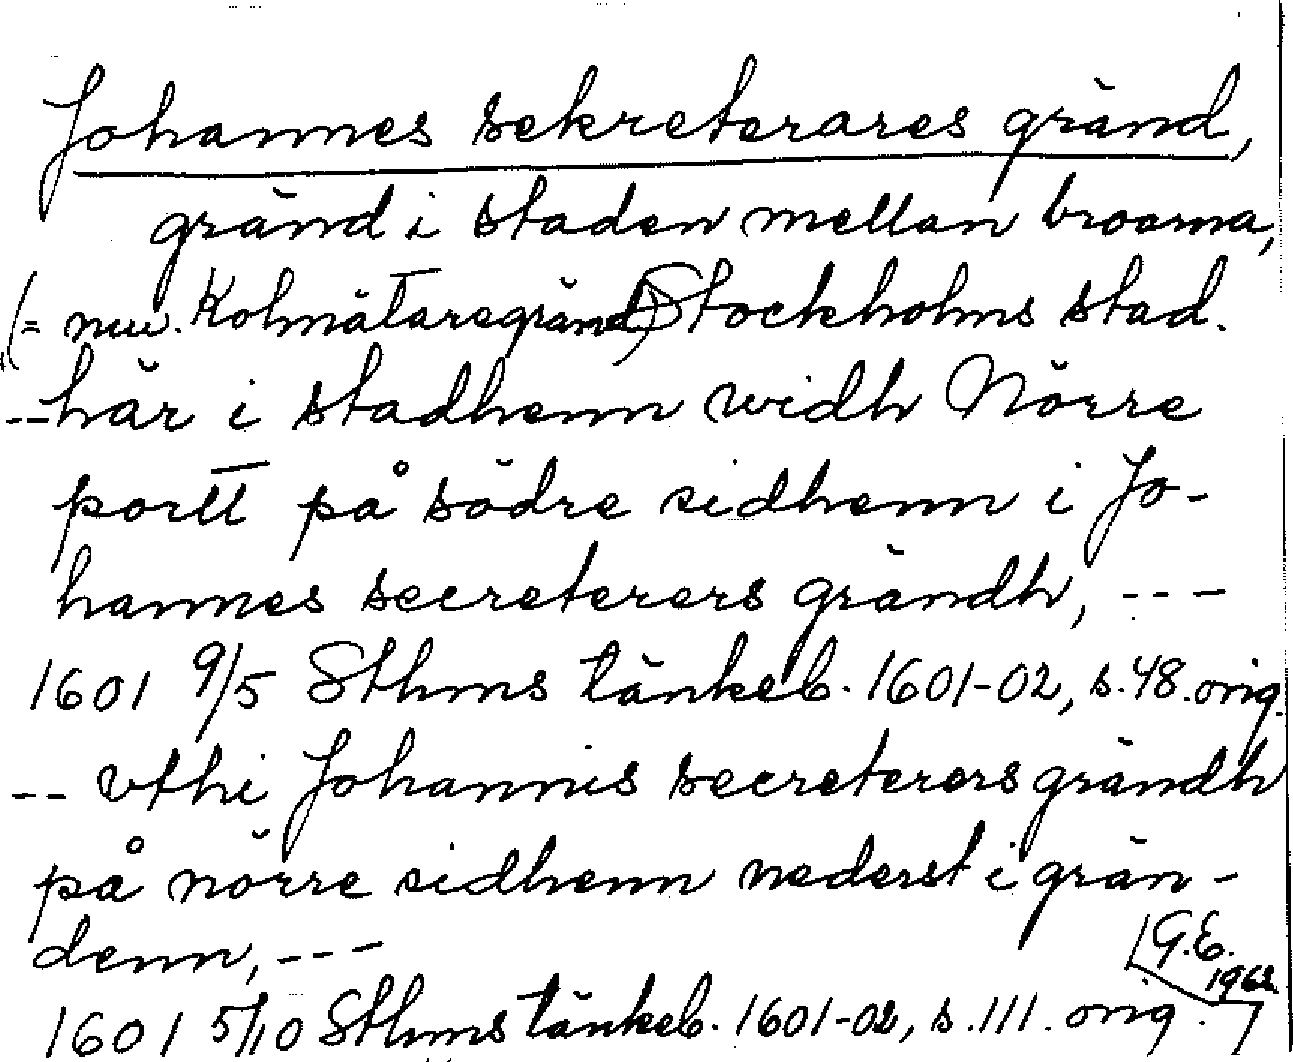 Johannes sekreterares gränd,
gränd i staden mellan broarna,
(= nuv. Kolmätaregränd) Stockholms stad.
-- här i stadhenn widh Nörre
portt på södre sidhenn i Jo-
hannes secreterers grändh, ---
1601 9/5 Sthms tänkeb. 1601-02, s. 48. orig.
-- vthi Johannis secreterers grändh
på nörre sidhenn nederst i grän-
denn, ---
G.E.
1962
1601 5/10 Sthms tänkeb. 1601-02, s. 111. orig.